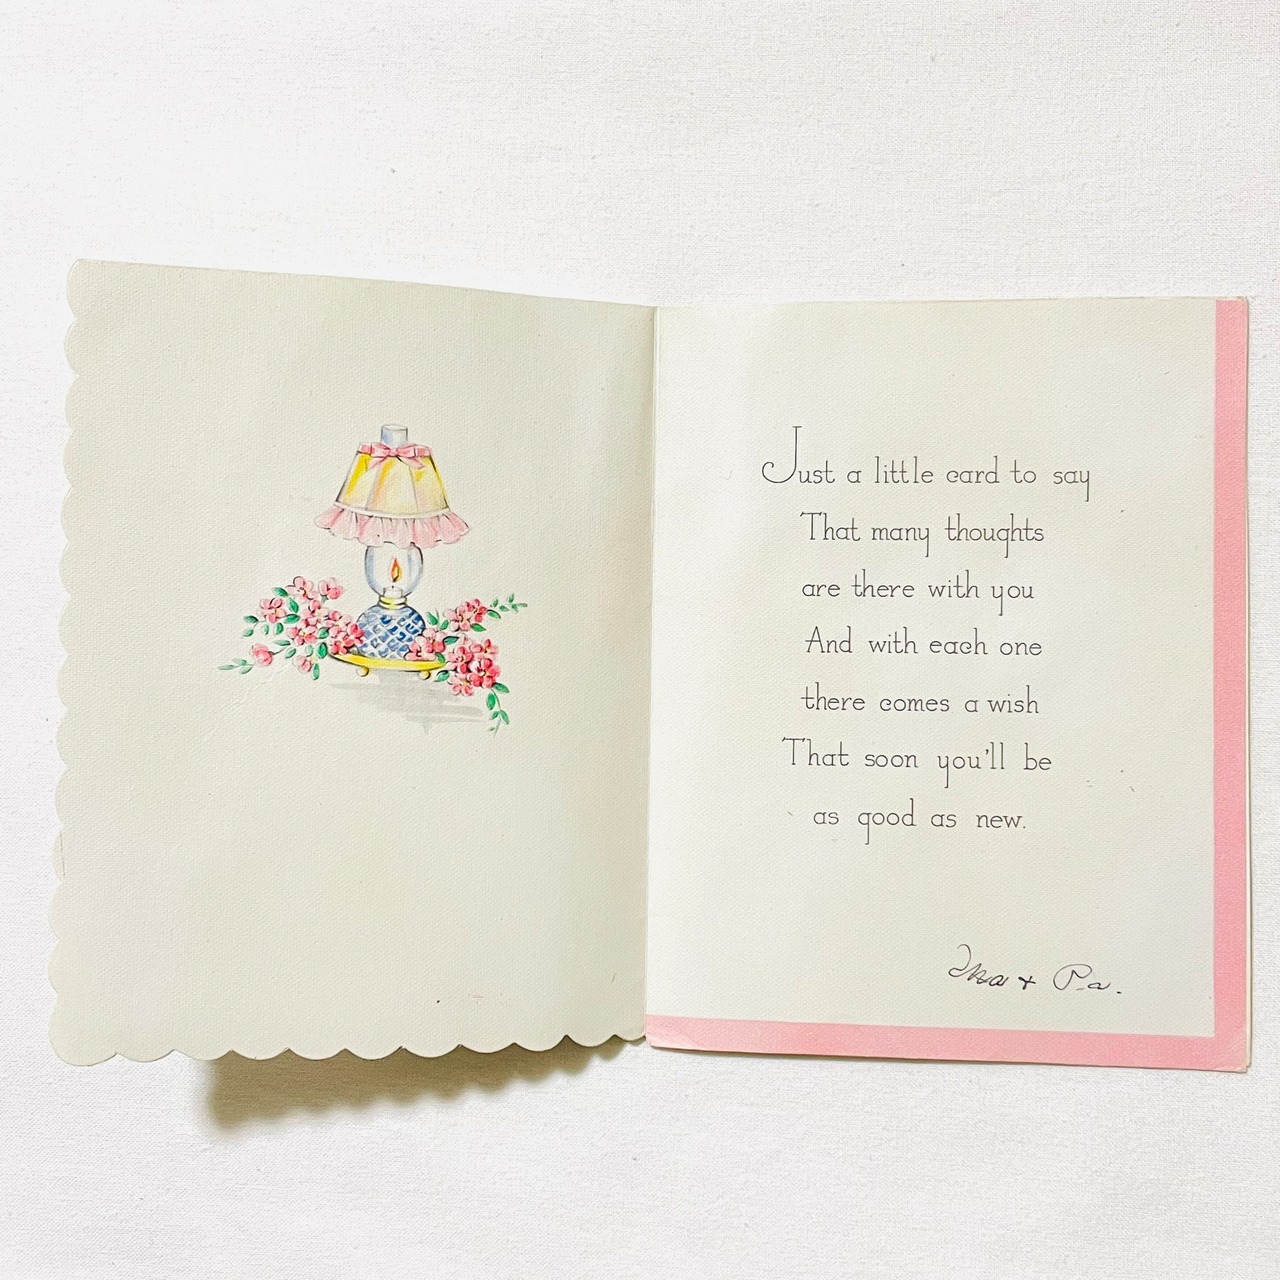 Just a little card to say
That many thoughts
are there with you
And with each one
there comes a wish
That soon you'll be
as good as new.
Ma + Pa.